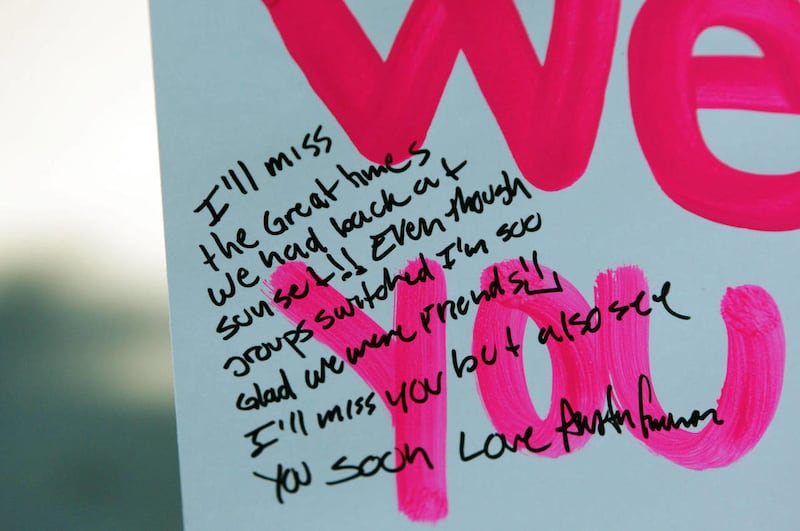 We
You
I'll miss
the Great times
we had back at
sunset!! Even though
groups switched I'm soo
Glad we were friends
I'll miss you but also see
You soon Love Austin